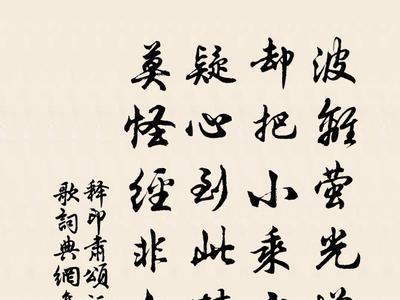 波離萤光
却把小乘
疑心到此
莫怪經非
释印肃頌
歌詞典網